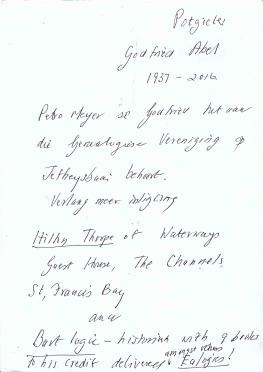 Potgieter
Godfried Abel
1937 - 2016
Petro Meyer se Godfried het aan
die Genealogiese Vereniging op
Jeffreysbaai behoort.
Verlang meer inligting
Hilhy Thorpe of Waterways
Guest House, The Channels
St, Francis Bay
and
Bart logie - historian with 9 books
amongst others
to his credit delivered Eulogies!